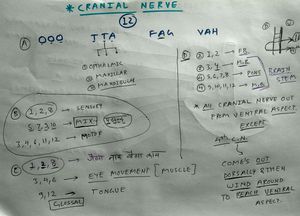 * CRANIAL NERVE
12
A OOO TTA FAG VAH
① OPTHALMIC
② MAXILLAR
③ MANDIBULAR
B 1, 2, 8 → SENSORY
5, 7, 9, 10 → MIX
3, 4, 6, 11, 12 → MOTOR
C 1, 2, 8 → जैसा नाम वैसा काम
3, 4, 6 → EYE MOVEMENT [MUSCLE]
9, 12 → TONGUE
GLOSSAL
D
① 1, 2 → FB
② 3, 4 → MB
③ 5, 6, 7, 8 → PONS
④ 9, 10, 11, 12 → MO
BRAIN STEM
* All CRANIAL NERVE OUT
FROM VENTRAL ASPECT
EXCEPT
4th C.N.
COME'S OUT
DORSALLY & THEN
WIND AROUND
TO REACH VENTRAL
ASPECT.